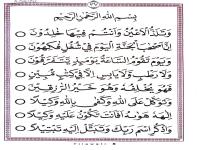 بسم الله الرحمن الرحيم
وتلذ الأعين وأنتم فيها خلدون
إن أصحب الجنة اليوم في شغل فكهون
ويوم تقوم الساعة يومئذ يتفرقون
ولا رطب ولا يابس إلا في كتب مبين
فهو يخلفه وهو خير الرزقين
وتوكل على الله وكفى بالله وكيلا
الهه هوىه أفأنت تكون عليه وكيلا
واذكر اسم ربك وتبتل إليه تبتيلا